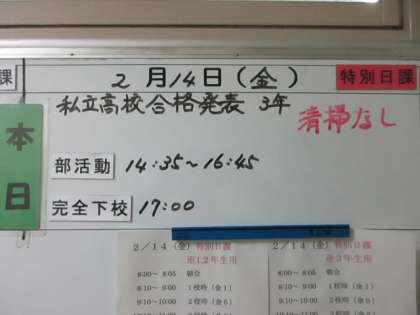 課 2月14日(金) 特別日課
本日
私立高校合格発表 3年
清掃なし
部活動 14:35～16:45
完全下校 17:00
2／14（金）特別日課
※1,2年生用
8:00～ 8:05 朝会
8:10～ 9:00 1校時（金1）
9:10～10:00 2校時（金6）
2／14（金）特別日課
※3年生用
8:00～ 8:05 朝会
8:10～ 9:00 1校時（金1）